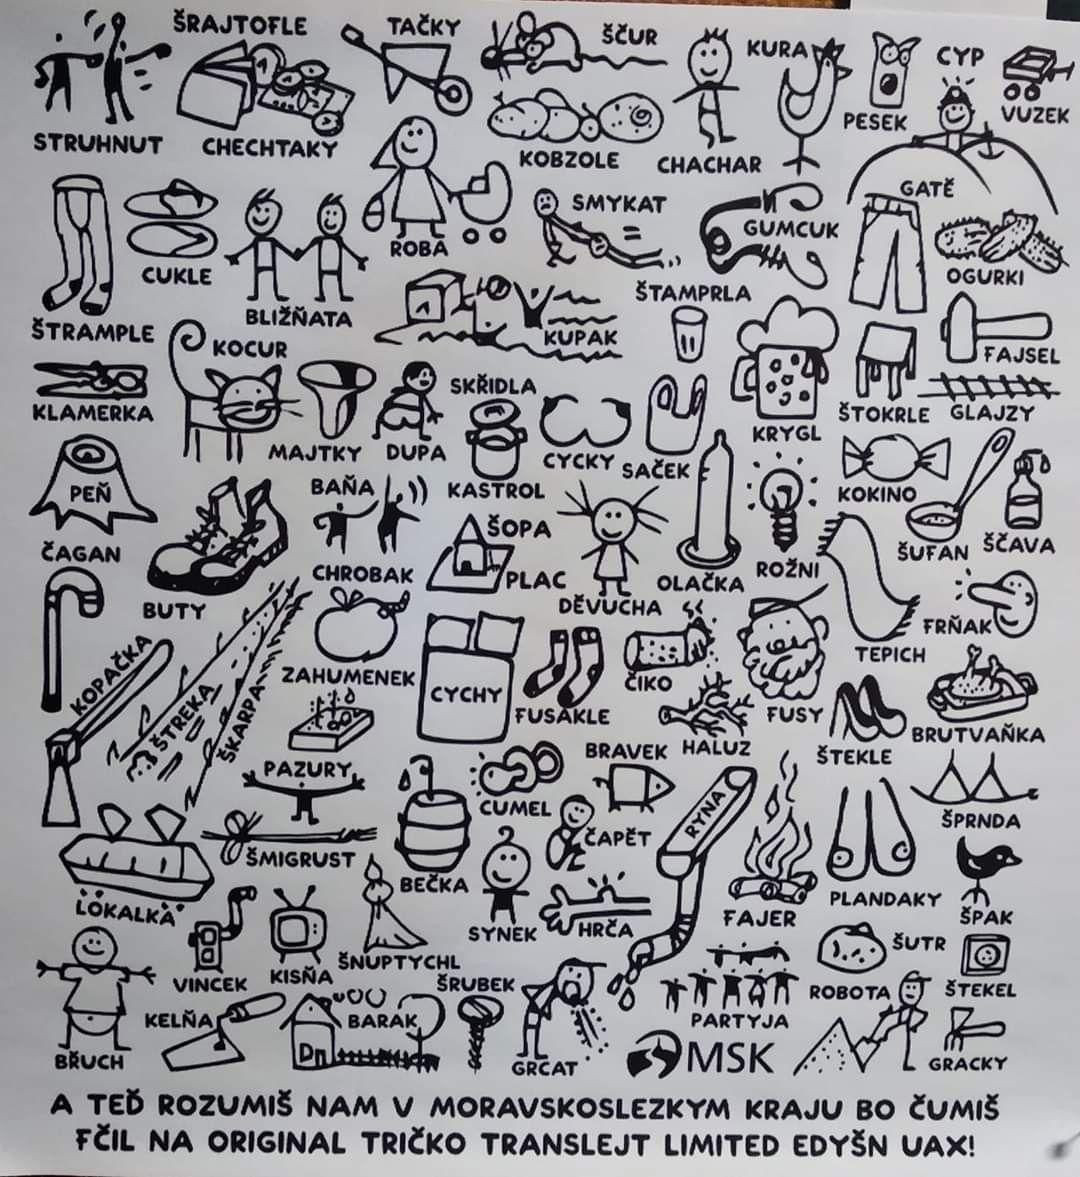 ŠRAJTOFLE
TAČKY
ŠČUR
KURA
CYP
VUZEK
PESEK
STRUHNUT
CHECHTAKY
KOBZOLE
CHACHAR
GATĚ
SMYKAT
GUMCUK
ROBA
OGURKI
CUKLE
BLIŽŇATA
ŠTAMPRLA
ŠTRAMPLE
KOCUR
KUPAK
FAJSEL
KLAMERKA
SKŘIDLA
ŠTOKRLE
GLAJZY
MAJTKY
DUPA
KRYGL
CYCKY
SAČEK
PEŇ
BAŇA
KASTROL
KOKINO
ŠOPA
ČAGAN
ŠUFAN
ŠČAVA
CHROBAK
PLAC
OLAČKA
ROŽNI
BUTY
DĚVUCHA
FRŇAK
TEPICH
KOPAČKA
ZAHUMENEK
CYCHY
ČIKO
ŠTREKA
ŠKARPA
FUSAKLE
FUSY
BRUTVAŇKA
BRAVEK
HALUZ
ŠTEKLE
PAZURY
CUMEL
RYNA
ŠPRNDA
ČAPĚT
ŠMIGRUST
BEČKA
PLANDAKY
LOKALKA
SYNEK
HRČA
FAJER
ŠPAK
ŠUTR
VINCEK
KISŇA
ŠNUPTYCHL
ŠRUBEK
ROBOTA
ŠTEKEL
KELŇA
BARAK
PARTYJA
Dn
BŘUCH
GRCAT
MSK
GRACKY
A TEĎ ROZUMIŠ NAM V MORAVSKOSLEZKYM KRAJU BO ČUMIŠ
FČIL NA ORIGINAL TRIČKO TRANSLEJT LIMITED EDYŠN UAX!